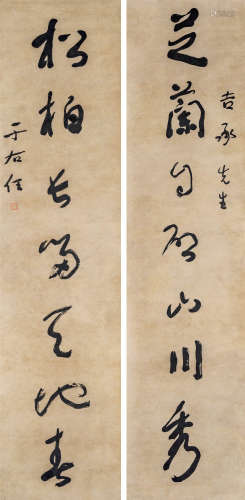 芝蘭自啟山川秀
吉承先生
松柏長留天地春
于右任